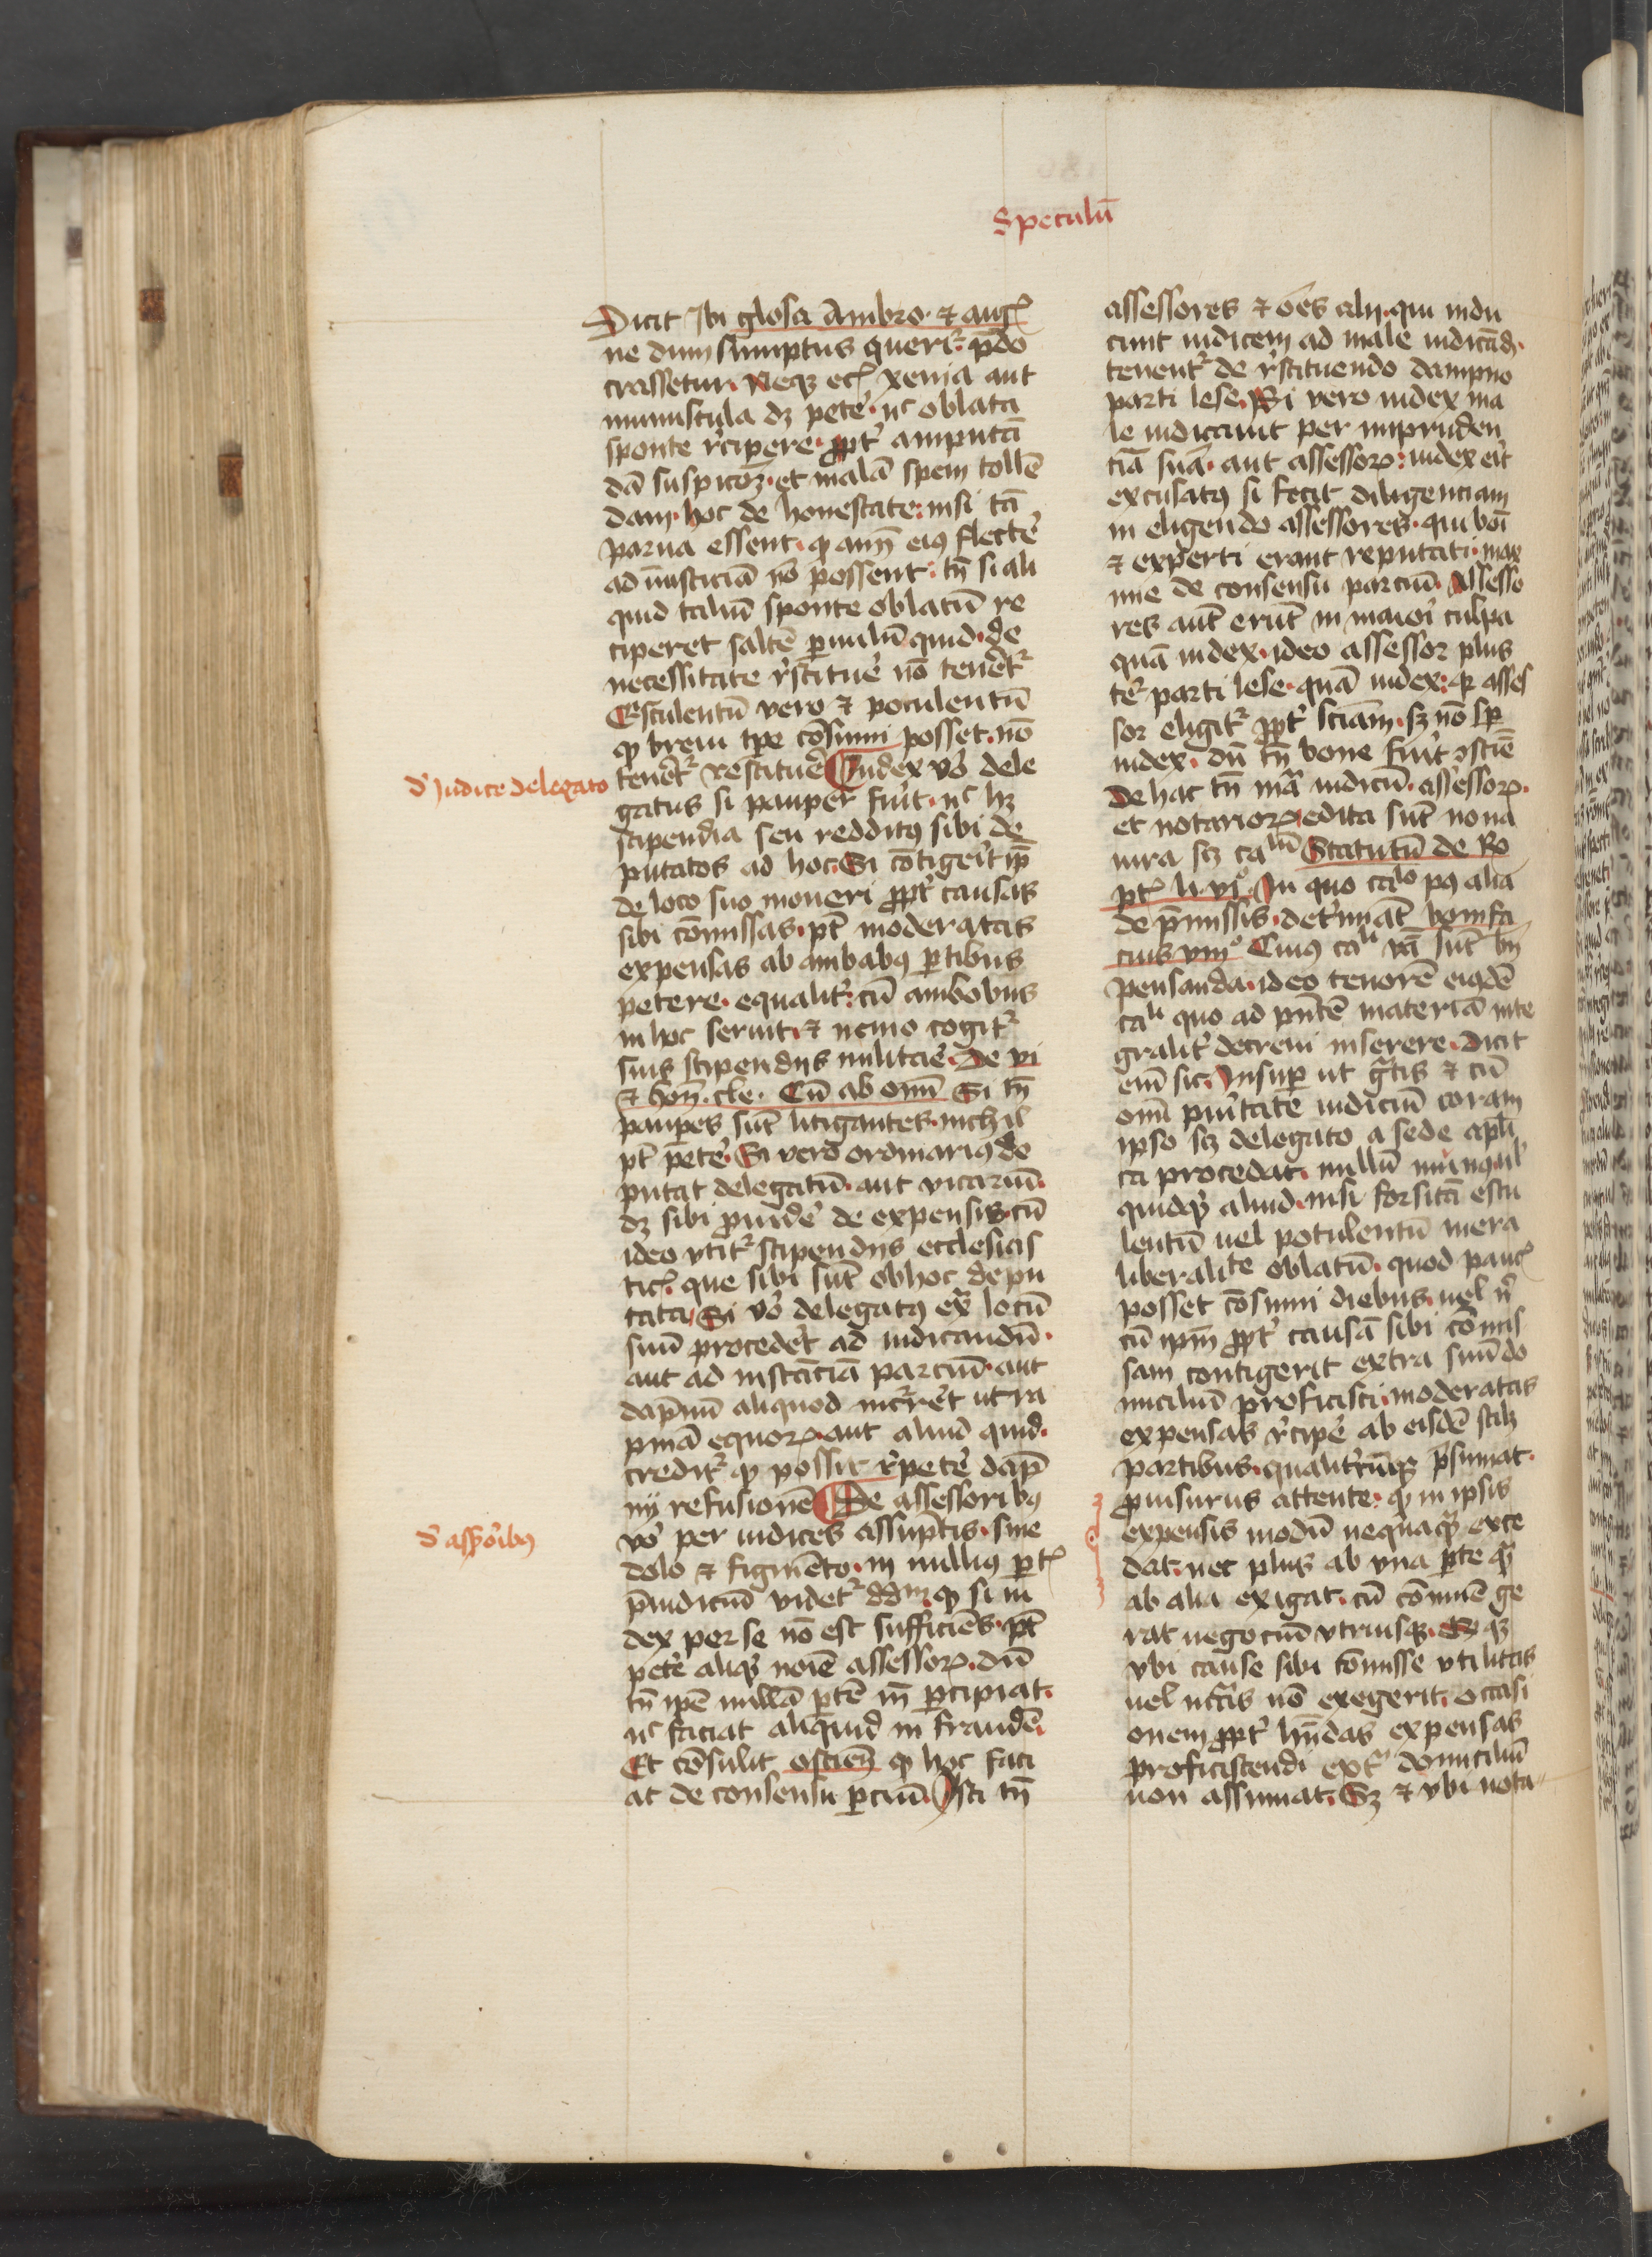 Speculū
Dicit Ibi glosa Ambro. ⁊ aug
ne dum sumptus querit᷑ p̄do
crassetur. Neqꝫ ec̄ xenia aut
munuscula dꝫ petē. nc oblata
sponte r̄cipere. ꝓpt᷑ amputā
dā suspicōꝫ. et malā spem tollē
dam. hoc de honestate: nisi tā
parua essent. ꝙ aīm eiꝰ flectē
ad iniusticiā nō possent. tn̄ si ali
quid taliū sponte oblatū re
ciperet saltē ꝑuulū quid. de
necessitate r̄stitue᷑ nō tenēt᷑
Esculentū vero ⁊ poculentū
ꝙ breui tp̄e cōsumi posset. nō
tenēt᷑ restitue᷑ Iudex vō dele
d᷑ Iudice delegato
gatus si pauper fuīt. nc hꝫ
stipendia seu redditꝰ sibi de
putatos ad hoc. Si cōtigeīt ip̄
de loco suo moueri ꝓpt᷑ causas
sibi cōmissas. pt̄ moderatas
expensas ab ambabꝰ ꝑtibus
petere. equalit᷑: cū ambobus
in hoc seruit. ⁊ nemo cogit᷑
suis stipendijs militare᷑. De vi
⁊ hon̄. cle. Cū ab om̄i Si tn̄
pauꝑes sūt litigantes. nichil
pt̄ petē. Si vero ordinariꝰ de
putat delegatū. aut vicariū.
dꝫ sibi ꝓuidē de expensis. cū
ideo vtit᷑ stipendijs ecclesias
tic̄. que sibi sūt ob hoc depu
tata. Si vō delegatꝰ ex̄ locū
suū procedēt ad iudicandū.
aut ad instāciā parciū. aut
dāpnū aliquod incr̄rēt ultra
pn̄iā equoꝝ. aut aliud quid.
credit᷑ ꝙ possit r̄petē dāp
nij refusionē De assessoribꝰ
d᷑ asßoībꝰ
vō per iudices assūptis. sine
dolo ⁊ figmēto. in nulliꝰ ꝑt̄
p̄iudiciū videt᷑ dd̄m ꝙ si iu
dex per se nō est sufficiēs. pt̄
petē aliqͥd noīe assessoꝝ. dū
tn̄ ip̄e nullā ꝑtē īn ꝑcipiat.
nc faciat aliquid in fraudē.
Et cōsulit ostieñ ꝙ hoc faci
at de consensu ꝑciū. Isti tn̄
assessores ⁊ oēs alij. qui indu
cunt iudicem ad male iudicād᷑.
tenent᷑ de r̄stituendo dampno
parti lese. Si vero iudex ma
le iudicauit per impruden
tiā suā. aut assessoꝝ: iudex eīt
excusatꝰ si fecit diligenciam
in eligendo assessores. qui boī
⁊ experti erant reputati. max
ime de consensu parciū. Assesso
res aūt erūt in maioī culpa
quā iudex. ideo assessor plus
tēt᷑ parti lese. quā iudex: ꝙ asses
sor eligit᷑ ꝓpt᷑ sciām. sꝫ nō sꝑ
iudex. dū tn̄ bone fuīt ꝯsciē
De hac tn̄ mā iudicū. assessoꝝ.
et notarioꝝ. edita sūt noua
iura scꝫ calm̄ Statutū de Ro
pt̄ li. vi᷑. In quo calo pꝰ alia
de p̄missis. det᷑mīat bonifa
cius viijo Cuiꝰ cali vā sūt bn̄
pensanda. ideo tenorē eiꝰdē
cali quo ad pn̄tē materiā inte
gralit᷑ decreui inserere. Dicit
em̄ sic. Insuꝑ ut gr̄tis ⁊ cū
om̄i puītate iudiciū coram
ipso scꝫ delegato a sede apl̄i
ca procedat. nullū munꝰ. ul᷑
quidqͣ aliud. nisi forsitā escu
lentū uel potulentū mera
liberalite oblatū. quod pauc̄
posset cōsumi diebus. uel n̄
cū ipm̄ ꝓpt᷑ causā sibi cōmis
sam contigerit extra suū do
miciliū proficisci. moderatas
expensas r̄cipē ab eisdē scilꝫ
partibus. qualit᷑cūqꝫ p̄sumat.
ꝓuisurus attente. ꝙ in ipsis
expensis modū nequaqͣ exce
dat. nec plus ab vna ꝑte qͣ
ab alia exigat. cū cōmūē ge
rat negociū vtriusqꝫ. Et qꝫ
vbi cause sibi cōmisse vtilitas
uel ncc̄itas nō exegerit. occasi
onem ꝓpt᷑ hn̄das expensas
proficiscendi ext᷑ domiciliū
non assumat. Sꝫ ⁊ vbi nota